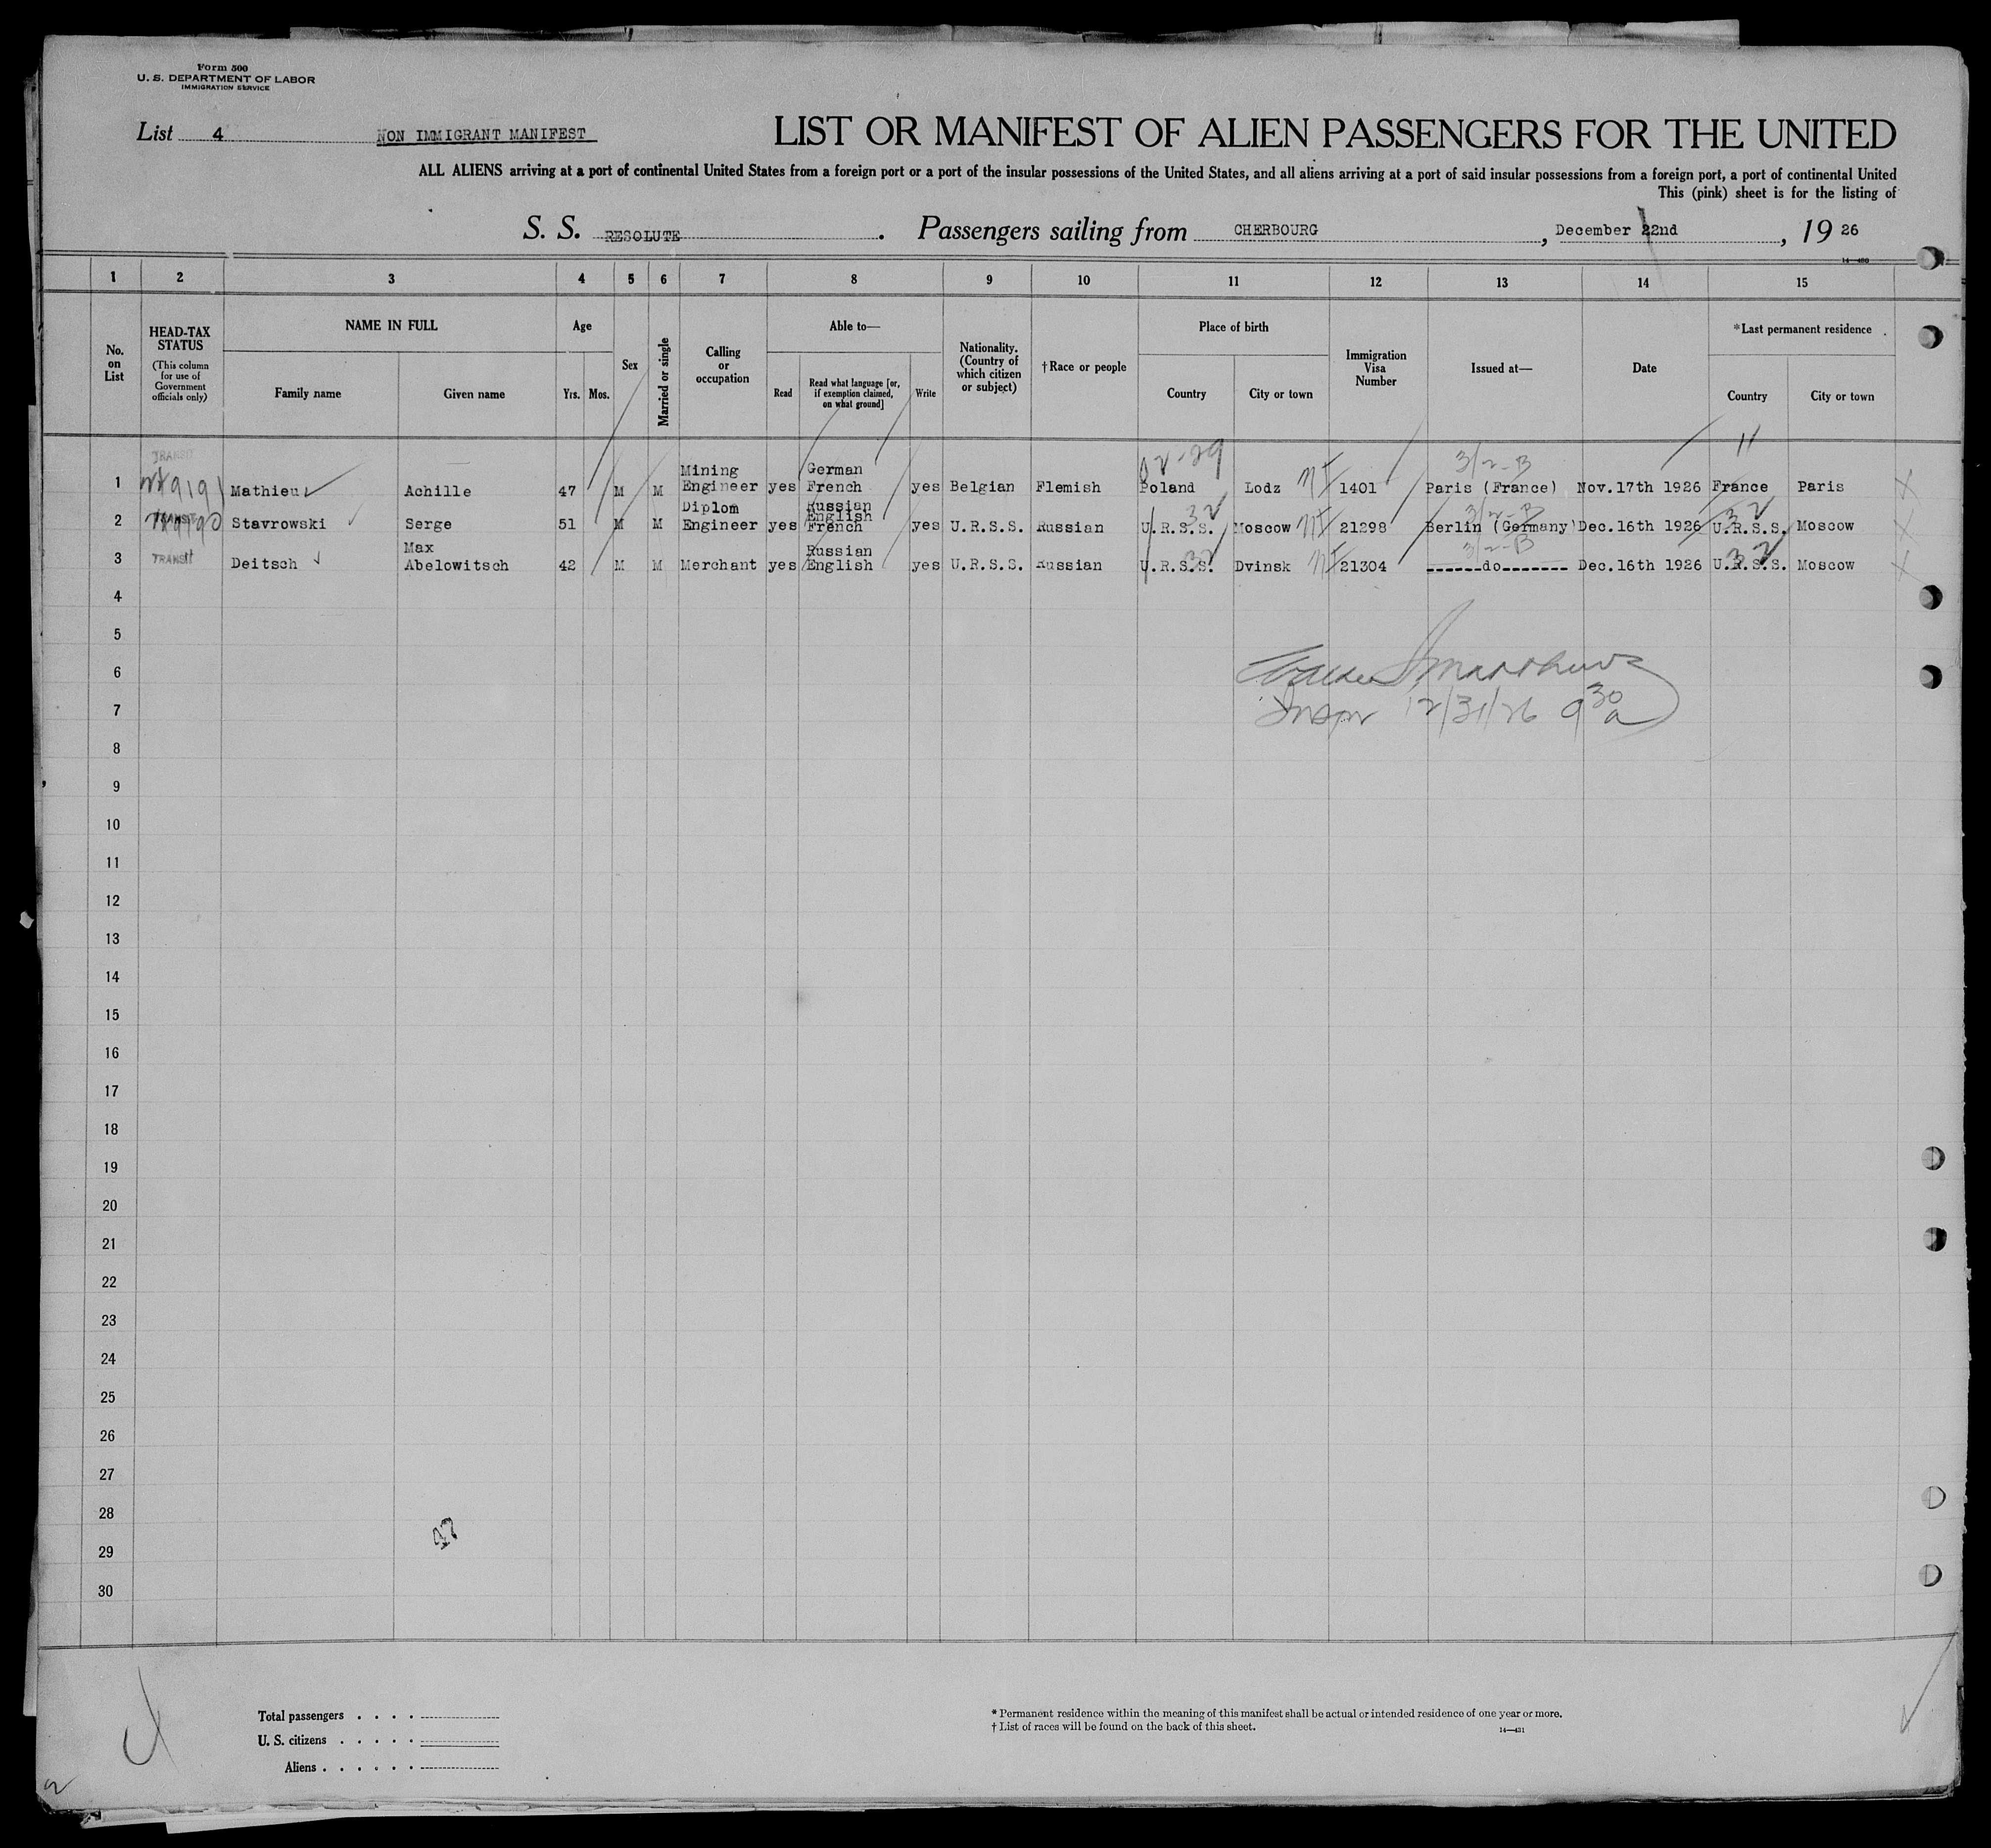 Form 500
U. S. DEPARTMENT OF LABOR
IMMIGRATION SERVICE
List 4 NON IMMIGRANT MANIFEST
LIST OR MANIFEST OF ALIEN PASSENGERS FOR THE UNITED
ALL ALIENS arriving at a port of continental United States from a foreign port or a port of the insular possessions of the United States, and all aliens arriving at a port of said insular possessions from a foreign port, a port of continental United
This (pink) sheet is for the listing of
S. S. RESOLUTE. Passengers sailing from CHERBOURG, December 22nd, 19 26
14—430
1 2 3 4 5 6 7 8 9 10 11 12 13 14 15
No. on List
HEAD-TAX STATUS
(This column for use of Government officials only)
NAME IN FULL
Family name Given name
Age
Yrs. Mos.
Sex
Married or single
Calling or occupation
Able to—
Read
Read what language [or, if exemption claimed, on what ground]
Write
Nationality. (Country of which citizen or subject)
†Race or people
Place of birth
Country City or town
Immigration Visa Number
Issued at—
Date
*Last permanent residence
Country City or town
11
TRANSIT 02-29 3/2-B
1 Mathieu Achille 47 M M Mining Engineer yes German French yes Belgian Flemish Poland Lodz 1401 Paris (France) Nov.17th 1926 France Paris
TRANSIT 32 3/2-B 32
2 Stavrowski Serge 51 M M Diplom Engineer yes Russian English French yes U.R.S.S. Russian U.R.S.S. Moscow 21298 Berlin (Germany) Dec.16th 1926 U.R.S.S. Moscow
TRANSIT 32 3/2-B 32
3 Deitsch Max Abelowitsch 42 M M Merchant yes Russian English yes U.R.S.S. Russian U.R.S.S. Dvinsk 21304 ------do------- Dec.16th 1926 U.R.S.S. Moscow
4
5
6
7 Inspr 12/31/26 9 30 a
8
9
10
11
12
13
14
15
16
17
18
19
20
21
22
23
24
25
26
27
28
29
30
Total passengers . . . .
U. S. citizens . . . . .
Aliens . . . . . .
* Permanent residence within the meaning of this manifest shall be actual or intended residence of one year or more.
† List of races will be found on the back of this sheet.
14—431